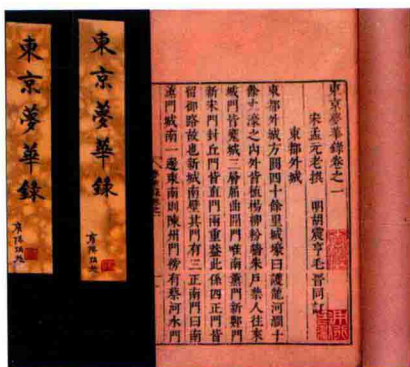 東京夢華錄卷之一
宋孟元老撰 明胡震亨毛晉同訂
東都外城
東都外城方圓四十餘里城壕曰護龍河濶十
餘丈濠之內外皆植楊柳粉牆朱戶禁人往來
城門皆甕城三層屈曲開門唯南薰門新鄭門
新宋門封丘門皆直門兩重蓋此係四正門皆
留御路故也新城南壁其門有三正南門曰南
薰門城南一邊東南則陳州門傍有蔡河水門
東京夢華錄
東京夢華錄